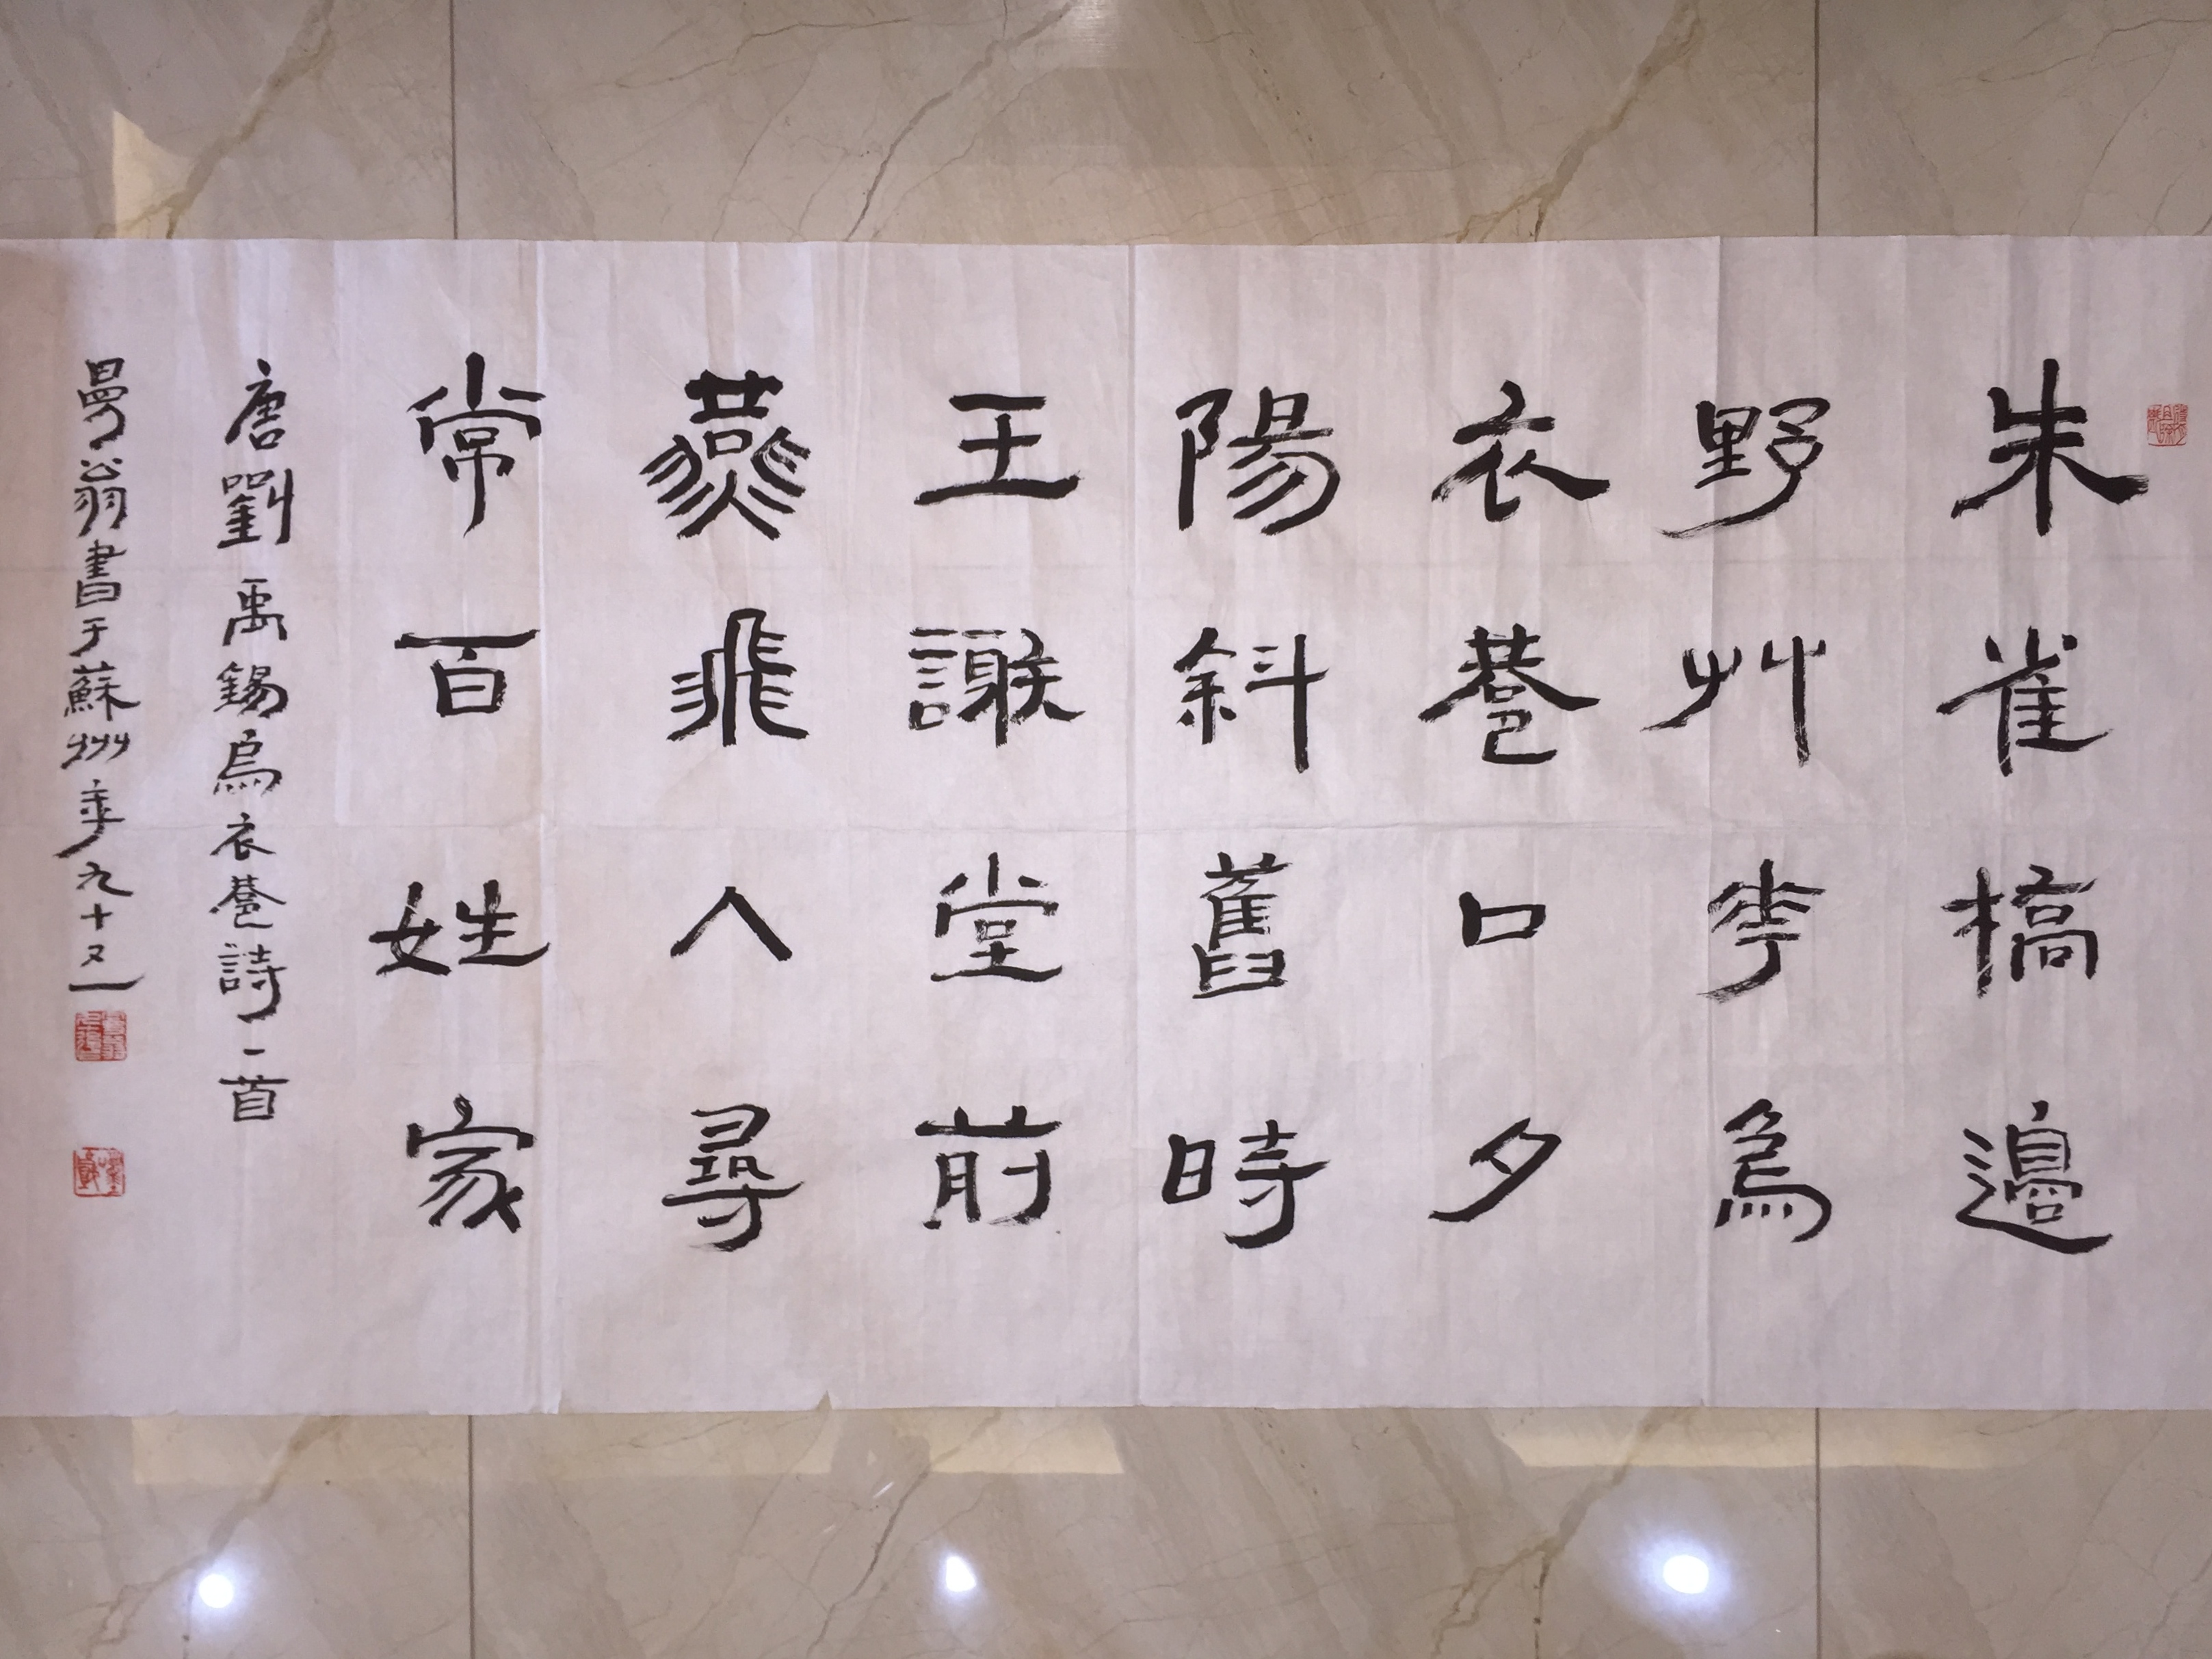 朱雀橋邊
野艸華烏
衣巷口夕
陽斜舊時
王謝堂前
燕飛入尋
常百姓家
唐劉禹錫烏衣巷詩一首
曼翁書于蘇州年九十又一